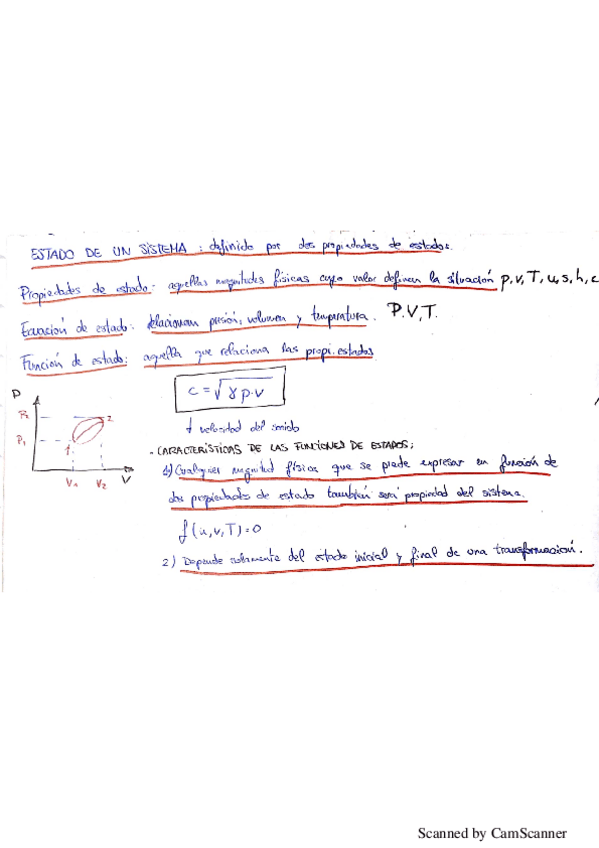 ESTADO DE UN SISTEMA : definido por dos propiedades de estados.
Propiedades de estado: aquellas magnitudes físicas cuyo valor definen la situación p, v, T, u, s, h, c
Ecuación de estado: relacionan presión, volumen y temperatura. P.V.T.
Función de estado: aquella que relaciona las propi.estados
c = √γ p·v
↓ velocidad del sonido
P
P2
P1
1
2
V1 V2 V
- CARACTERÍSTICAS DE LAS FUNCIONES DE ESTADOS;
1) Cualquier magnitud física que se puede expresar en función de
dos propiedades de estado también será propiedad del sistema.
f(u,v,T)=0
2) Depende solamente del estado inicial y final de una transformación.
Scanned by CamScanner